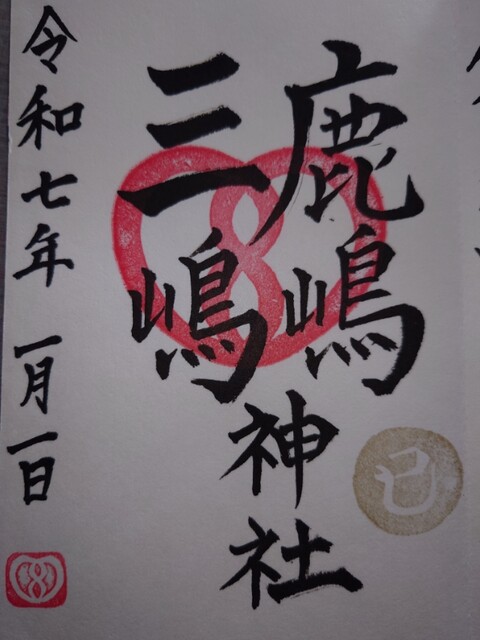 鹿嶋
三嶋
神社
令和七年 一月一日
巳